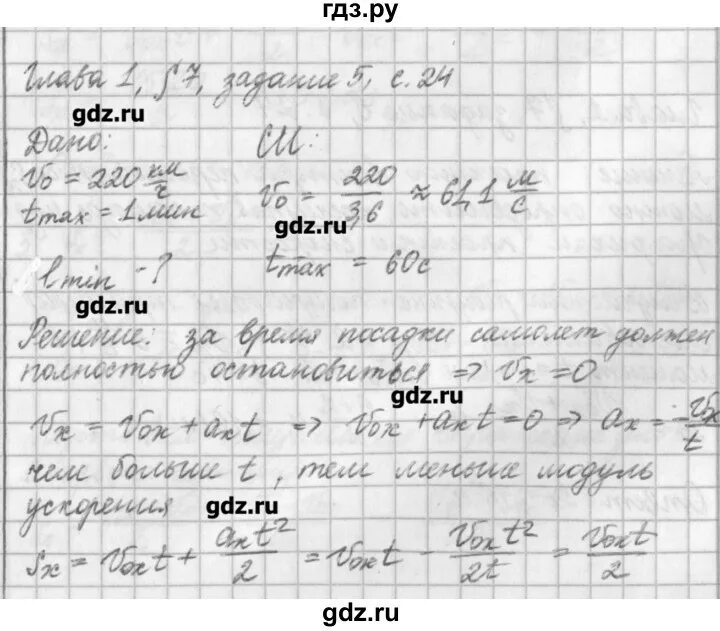 гдз.ру
Глава 1, § 7, задание 5, с. 24
gdz.ru
Дано: СИ:
v₀ = 220 км/ч v₀ = 220/3,6 ≈ 61,1 м/с
tmax = 1 мин
gdz.ru
lmin - ? tmax = 60с
gdz.ru
Решение: за время посадки самолет должен
полностью остановиться => vₓ = 0
gdz.ru
vₓ = v₀ₓ + aₓt => v₀ₓ + aₓt = 0 => aₓ = -v₀ₓ/t
чем больше t, тем меньше модуль
ускорения
gdz.ru
sₓ = v₀ₓt + aₓt²/2 = v₀ₓt - v₀ₓt²/2t = v₀ₓt/2
gdz.ru